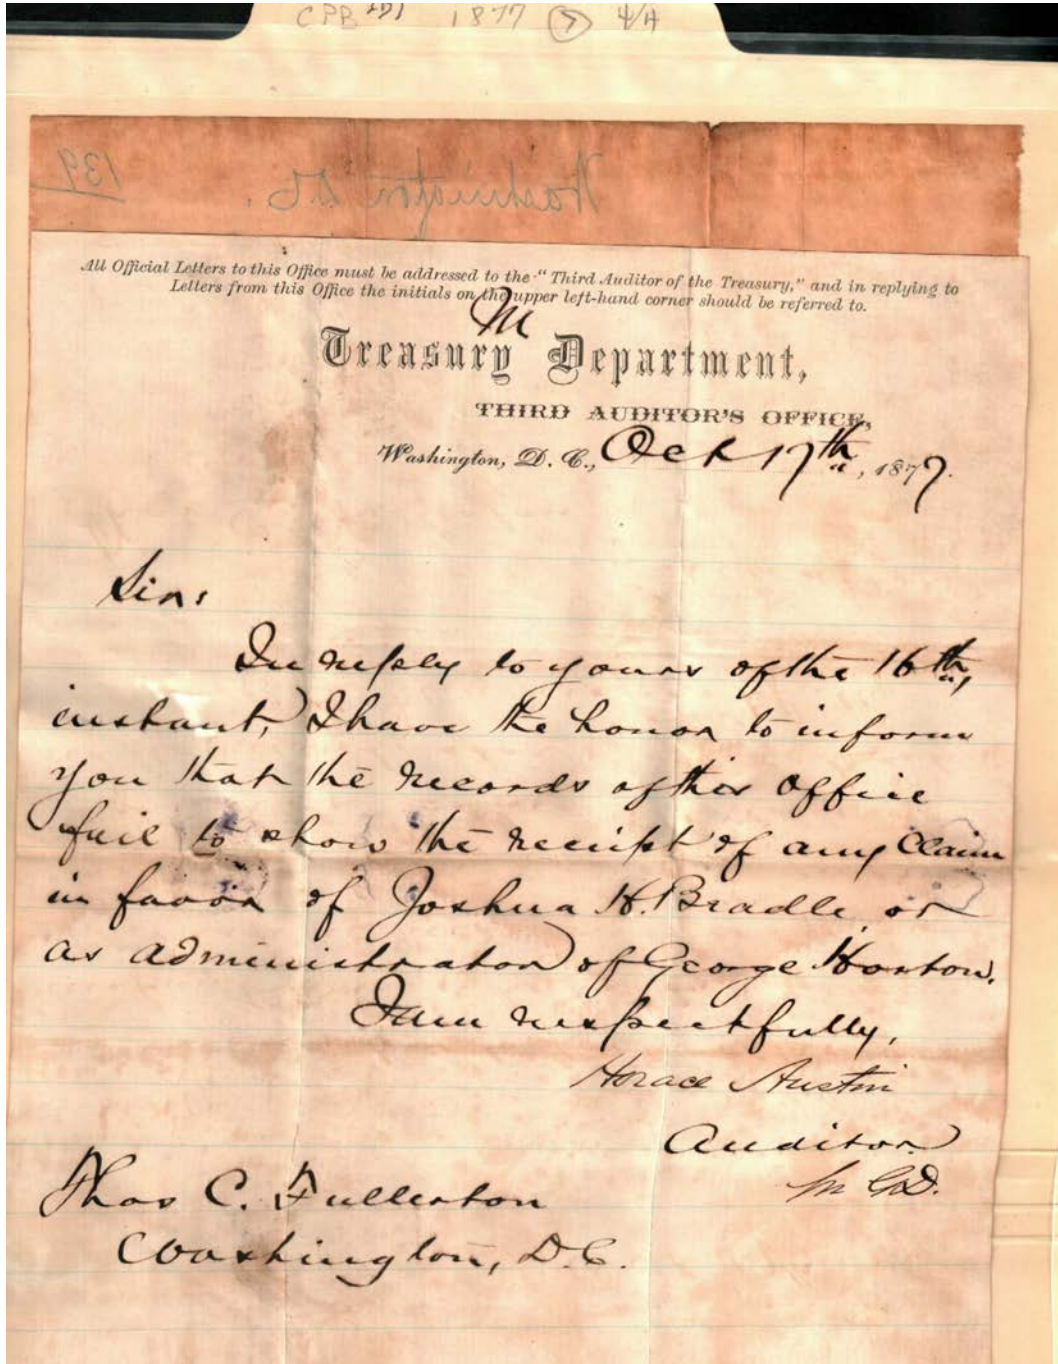 1877 7 4/A
139
Washington D.C.
All Official Letters to this Office must be addressed to the "Third Auditor of the Treasury," and in replying to
Letters from this Office the initials on the upper left-hand corner should be referred to.
M
Treasury Department,
THIRD AUDITOR'S OFFICE,
Washington, D. C., Oct 17th, 1877.
Sir:
In reply to yours of the 16th,
instant, I have the honor to inform
you that the records of this office
fail to show the receipt of any claim
in favor of Joshua H. Bradle, or
as administrator of George Horton.
I am respectfully,
Horace Austin
Auditor.
Thos C. Fullerton
Washington, D.C.